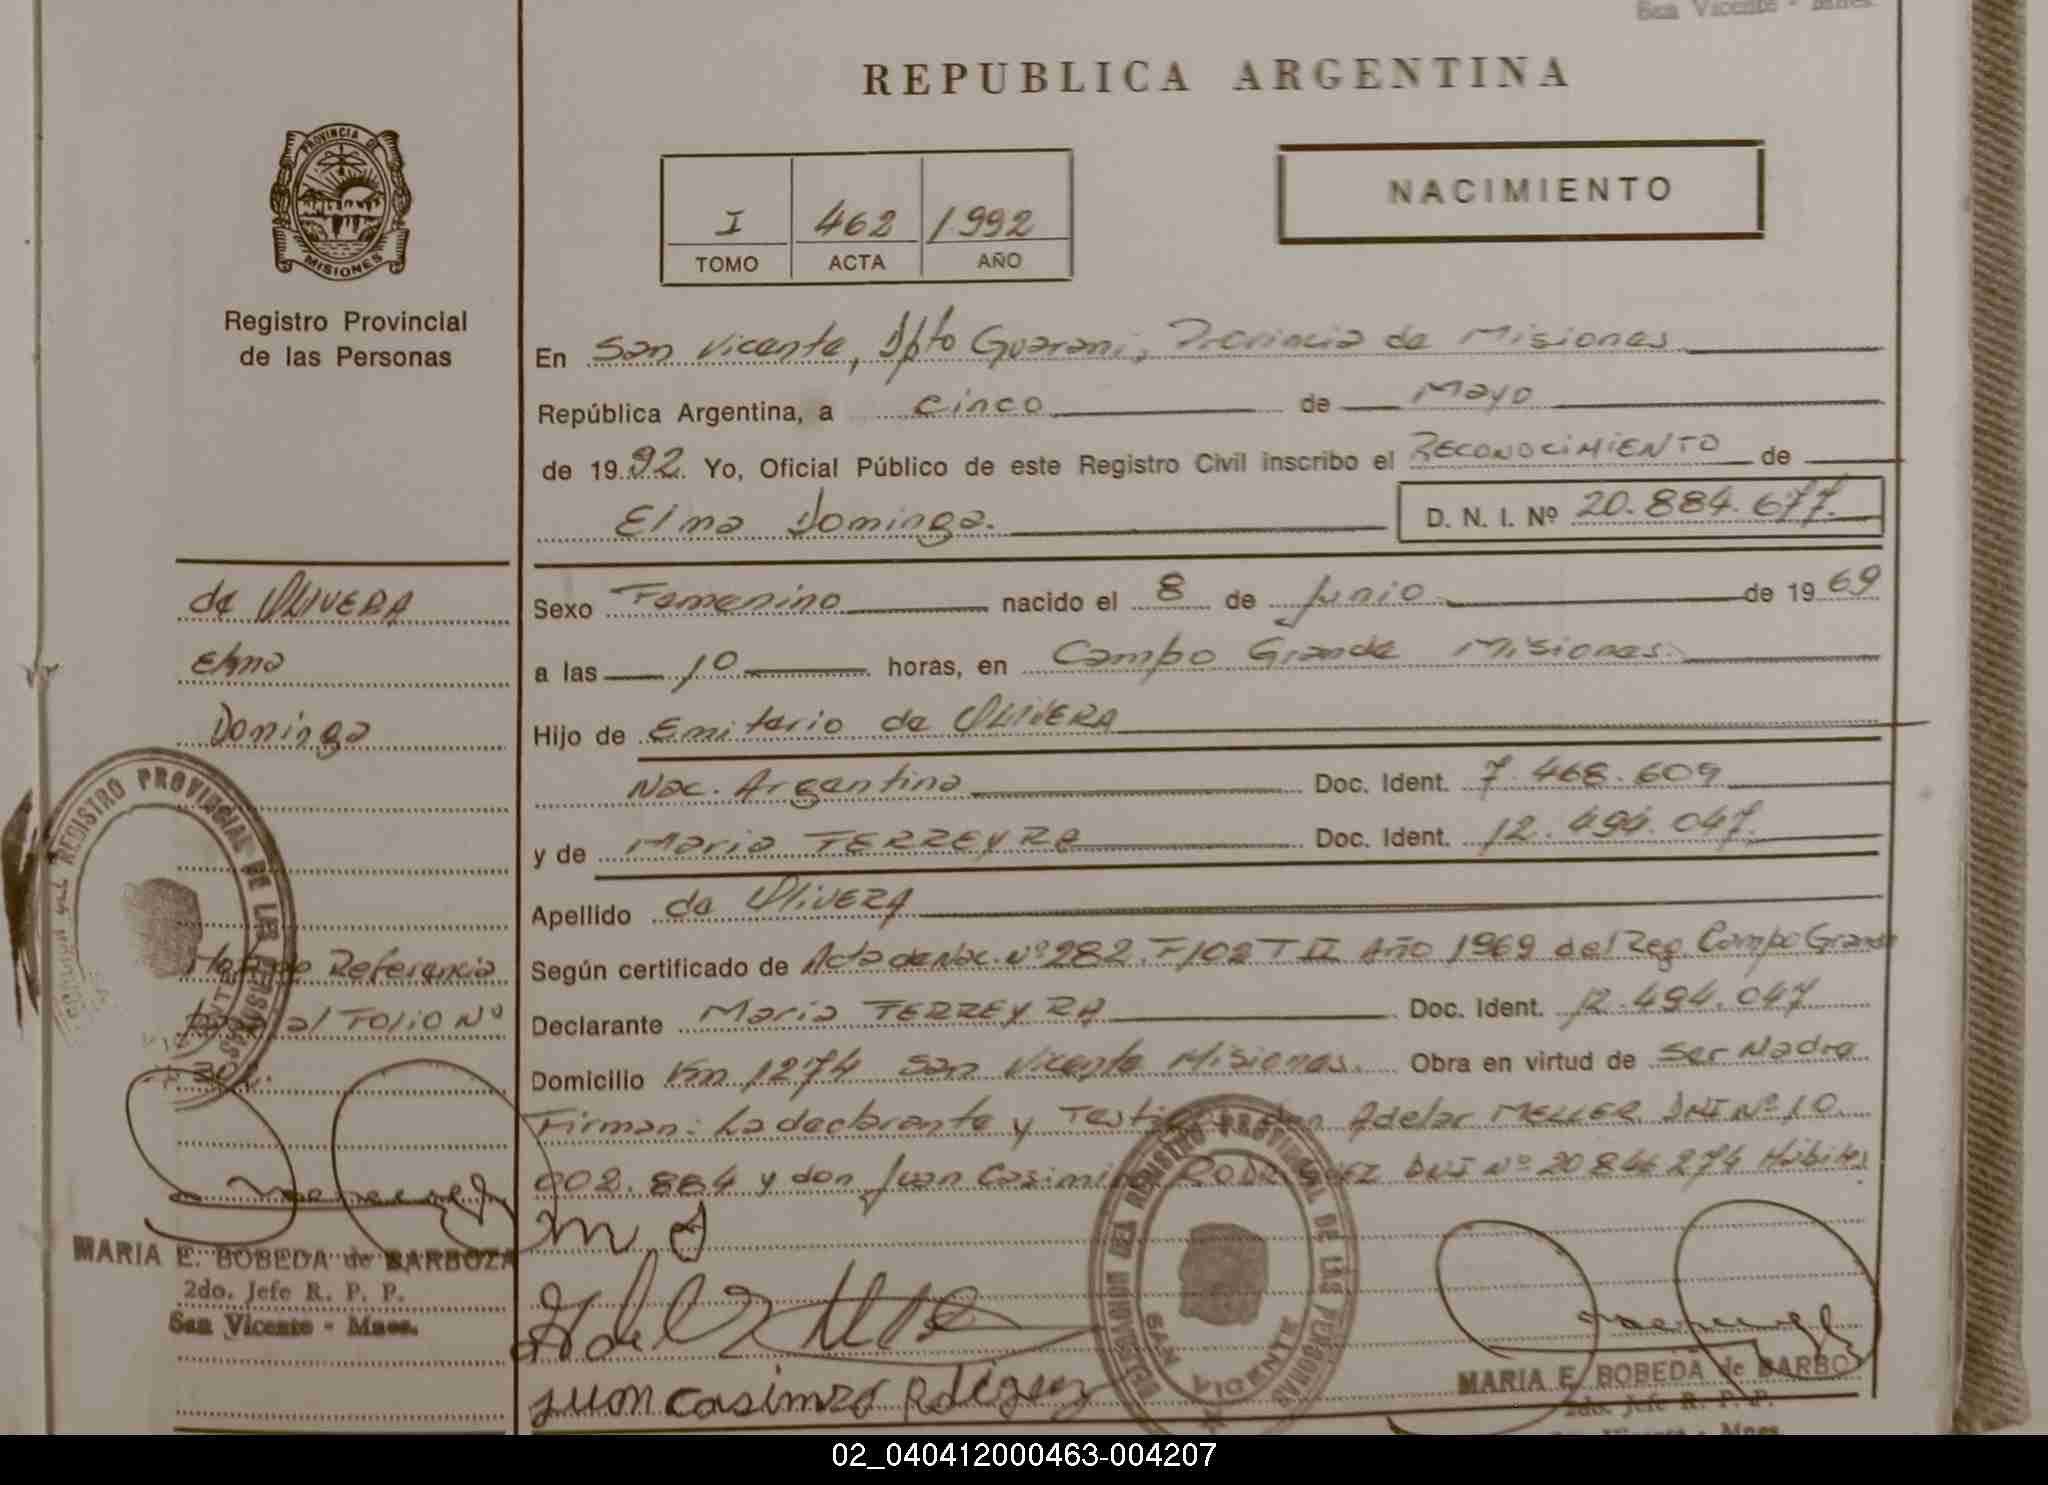 San Vicente - Mnes.
REPUBLICA ARGENTINA
PROVINCIA DE
MISIONES
Registro Provincial
de las Personas
I 462 1.992
TOMO ACTA AÑO
NACIMIENTO
En San Vicente, Dpto Guarani, Provincia de Misiones
República Argentina, a cinco de Mayo
de 1992. Yo, Oficial Público de este Registro Civil inscribo el RECONOCIMIENTO de
Elma Dominga. D. N. I. Nº 20.884.677.
de OLIVERA
Elma
Dominga
Sexo Femenino nacido el 8 de Junio de 1969
a las 10 horas, en Campo Grande Misiones.
Hijo de Emiterio de OLIVERA
Nac. Argentina Doc. Ident. 7.468.609
y de Maria TERREYRA Doc. Ident. 12.494.047.
Apellido de OLIVERA
Según certificado de Acta de Nac. Nº 282. F102 T II Año 1969 del Reg. Campo Grande
Declarante Maria TERREYRA Doc. Ident. 12.494.047
Domicilio Km 1274 San Vicente Misiones. Obra en virtud de Ser Madre
Firman: La declarante y Testigos don Adelar MELLER DNI Nº 10.
002.884 y don Juan Casimiro RODRIGUEZ DNI Nº 20 846 274 Hábiles
Referencia
al FOLIO Nº
REGISTRO PROVINCIAL DE LAS PERSONAS
MARIA E. BOBEDA de BARBOZA
2do. Jefe R. P. P.
San Vicente - Mnes.
REGISTRO PROVINCIAL DE LAS PERSONAS
SAN VICENTE
Juan casimro Rdigez
MARIA E. BOBEDA de BARBO
2do. Jefe R. P. P.
San Vicente - Mnes.
02_040412000463-004207